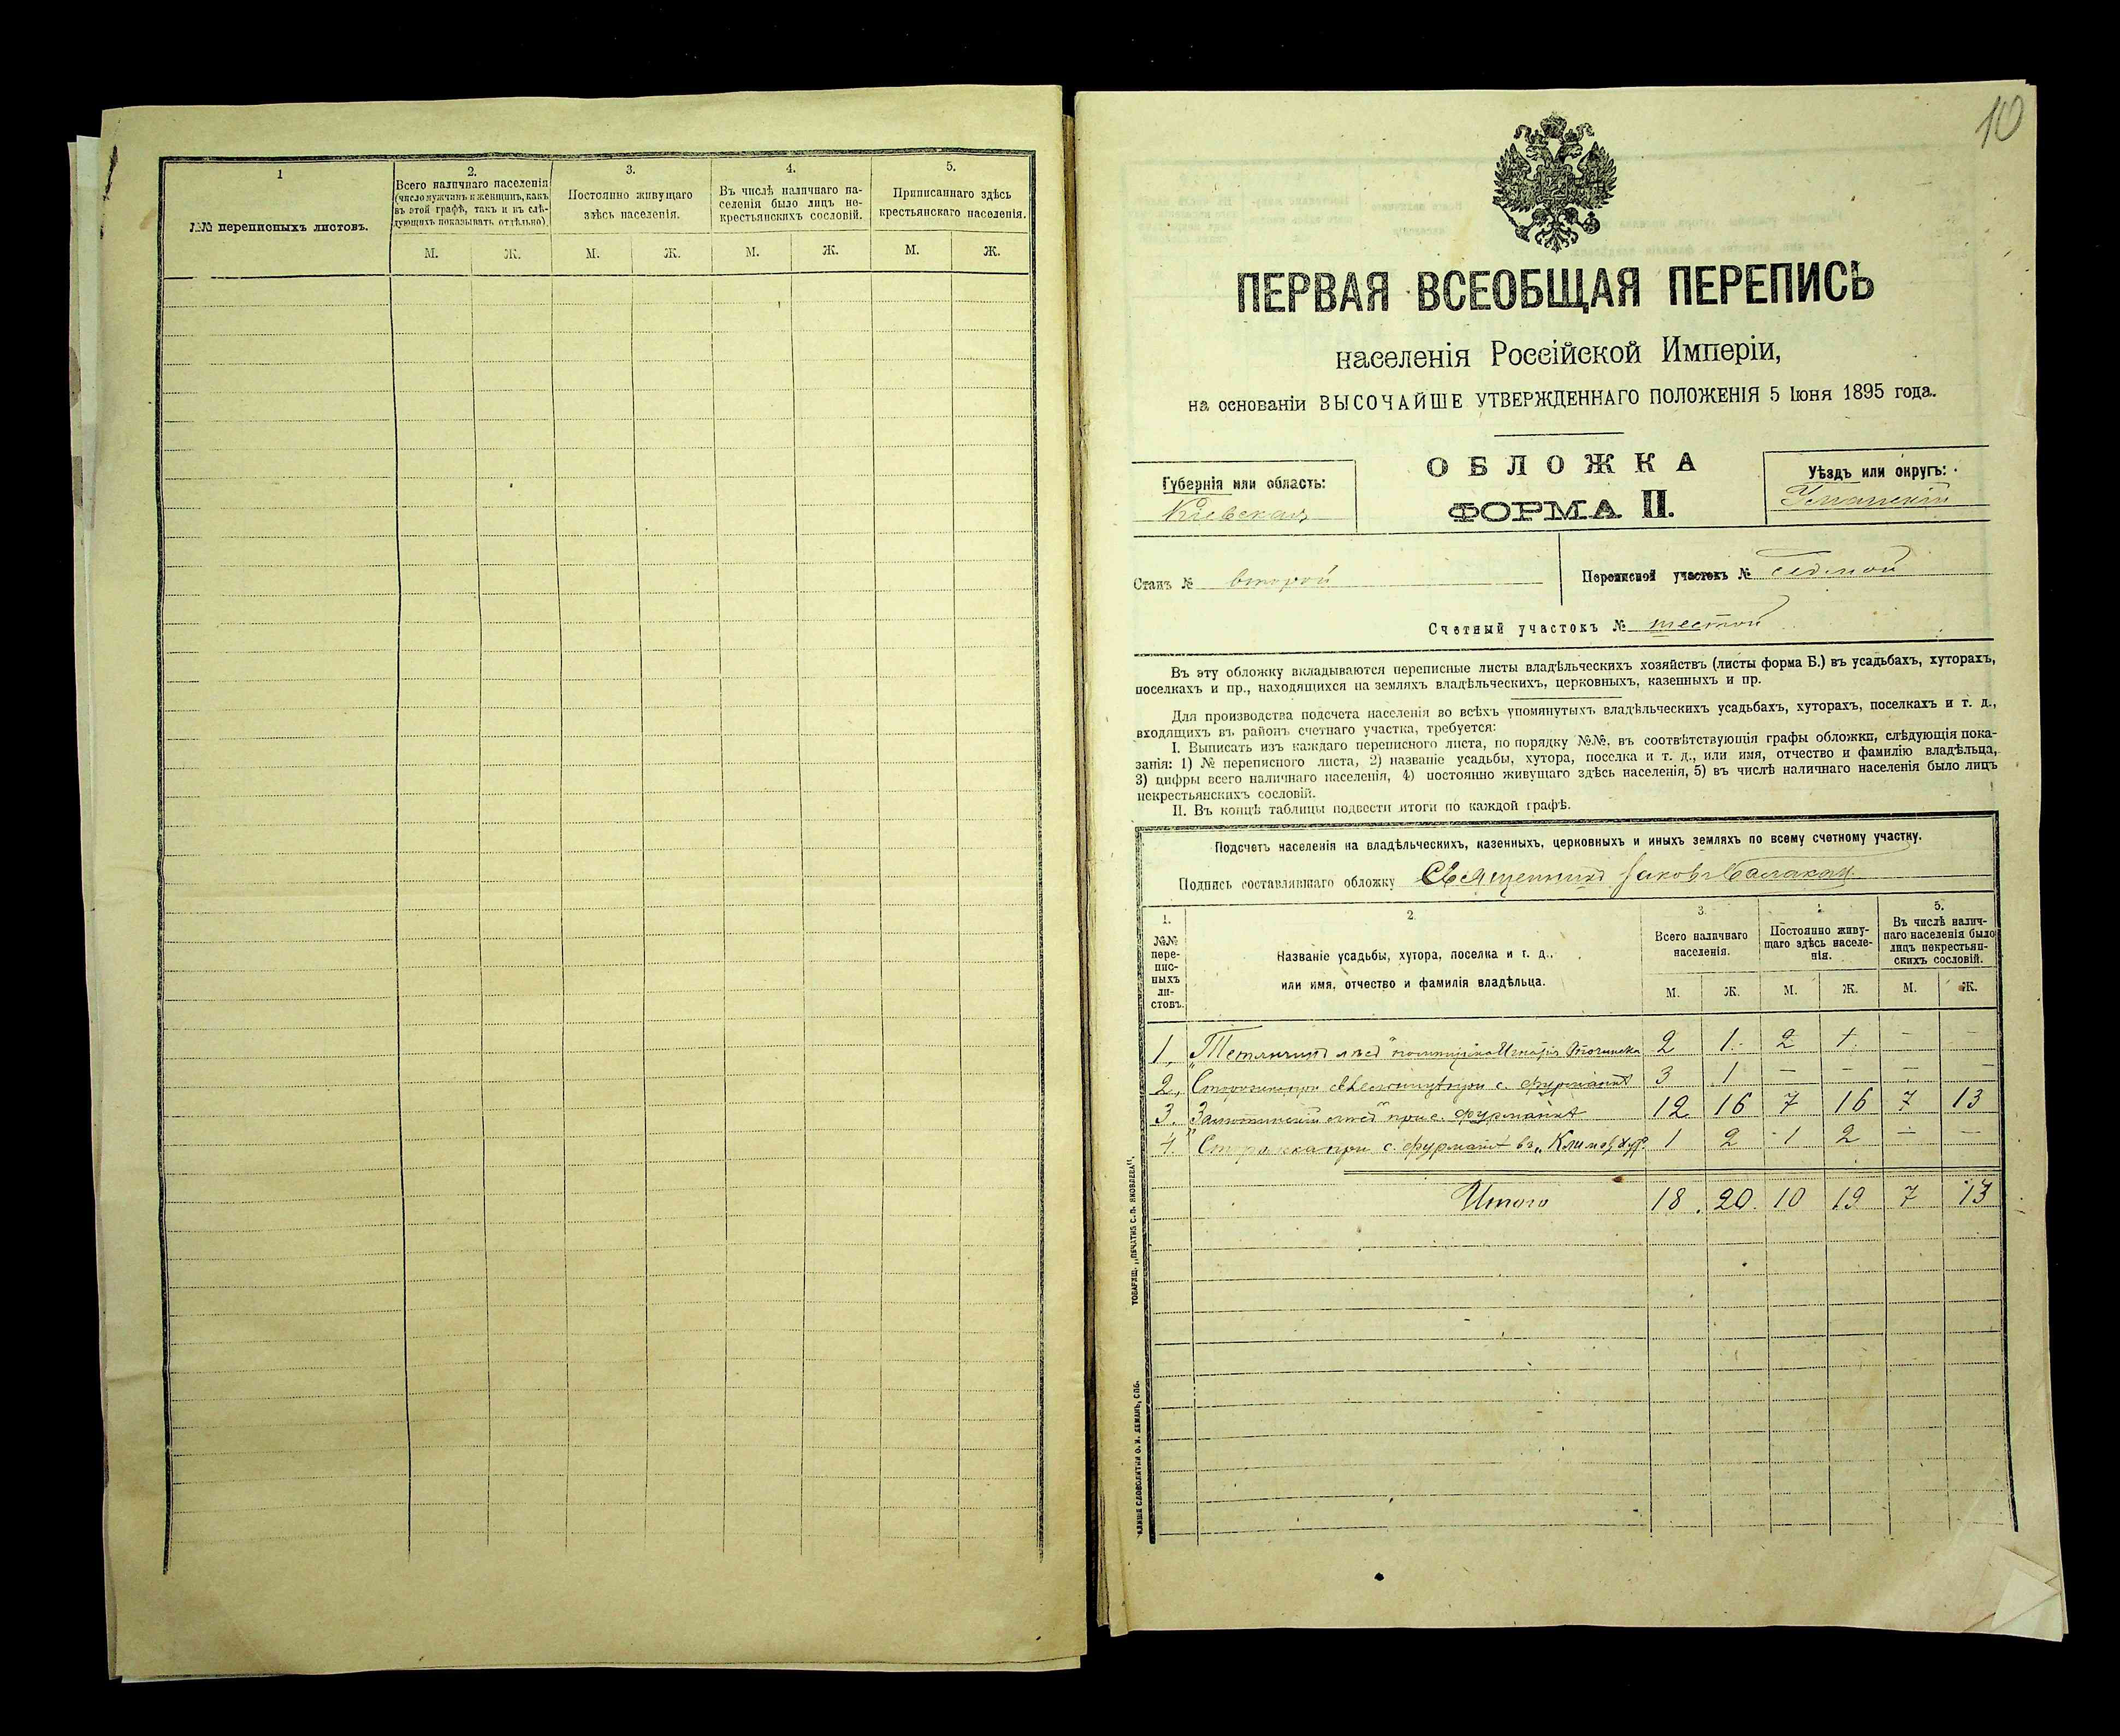 1
№№ переписныхъ листовъ.
2.
Всего наличнаго населенія
(число мужчинъ и женщинъ, какъ
въ этой графѣ, такъ и въ слѣ-
дующихъ показывать отдѣльно).
3.
Постоянно живущаго
здѣсь населенія.
4.
Въ числѣ наличнаго на-
селенія было лицъ не-
крестьянскихъ сословій.
5.
Приписаннаго здѣсь
крестьянскаго населенія.
М. Ж. М. Ж. М. Ж. М. Ж.
10
ПЕРВАЯ ВСЕОБЩАЯ ПЕРЕПИСЬ
населенія Россійской Имперіи,
на основаніи ВЫСОЧАЙШЕ УТВЕРЖДЕННАГО ПОЛОЖЕНІЯ 5 Іюня 1895 года.
ОБЛОЖКА
ФОРМА II.
Губернія или область:
Кіевская
Уѣздъ или округъ:
Уманскій
Станъ № второй
Переписной участокъ № седмой
Счетный участокъ № шестой
Въ эту обложку вкладываются переписные листы владѣльческихъ хозяйствъ (листы форма Б.) въ усадьбахъ, хуторахъ,
поселкахъ и пр., находящихся на земляхъ владѣльческихъ, церковныхъ, казенныхъ и пр.
Для производства подсчета населенія во всѣхъ упомянутыхъ владѣльческихъ усадьбахъ, хуторахъ, поселкахъ и т. д.,
входящихъ въ районъ счетнаго участка, требуется:
I. Выписать изъ каждаго переписного листа, по порядку №№, въ соотвѣтствующія графы обложки, слѣдующія пока-
занія: 1) № переписного листа, 2) названіе усадьбы, хутора, поселка и т. д., или имя, отчество и фамилію владѣльца,
3) цифры всего наличнаго населенія, 4) постоянно живущаго здѣсь населенія, 5) въ числѣ наличнаго населенія было лицъ
некрестьянскихъ сословій.
II. Въ концѣ таблицы подвести итоги по каждой графѣ.
Подсчетъ населенія на владѣльческихъ, казенныхъ, церковныхъ и иныхъ земляхъ по всему счетному участку.
Подпись составлявшаго обложку Священникъ Іаковъ
1.
№№
пере-
пис-
ныхъ
ли-
стовъ.
2.
Названіе усадьбы, хутора, поселка и т. д.,
или имя, отчество и фамилія владѣльца.
3.
Всего наличнаго
населенія.
4
Постоянно живу-
щаго здѣсь населе-
нія.
5.
Въ числѣ налич-
наго населенія было
лицъ некрестьян-
скихъ сословій.
М. Ж. М. Ж. М. Ж.
1. лѣсъ" 2 1 2 1 – –
2. при с. Фурманкѣ 3 1 – – – –
3. лѣсъ" при с. Фурманкѣ 12 16 7 16 7 13
4. Сторожка при с. Фурманкѣ въ „Климов. хут. 1 2 1 2 – –
Итого 18 20 10 19 7 13
ТОВАРИЩ. „ПЕЧАТНЯ С. П. ЯКОВЛЕВА".
КЛИШЕ СЛОВОЛИТНИ О. И. ЛЕМАНЪ, СПБ.